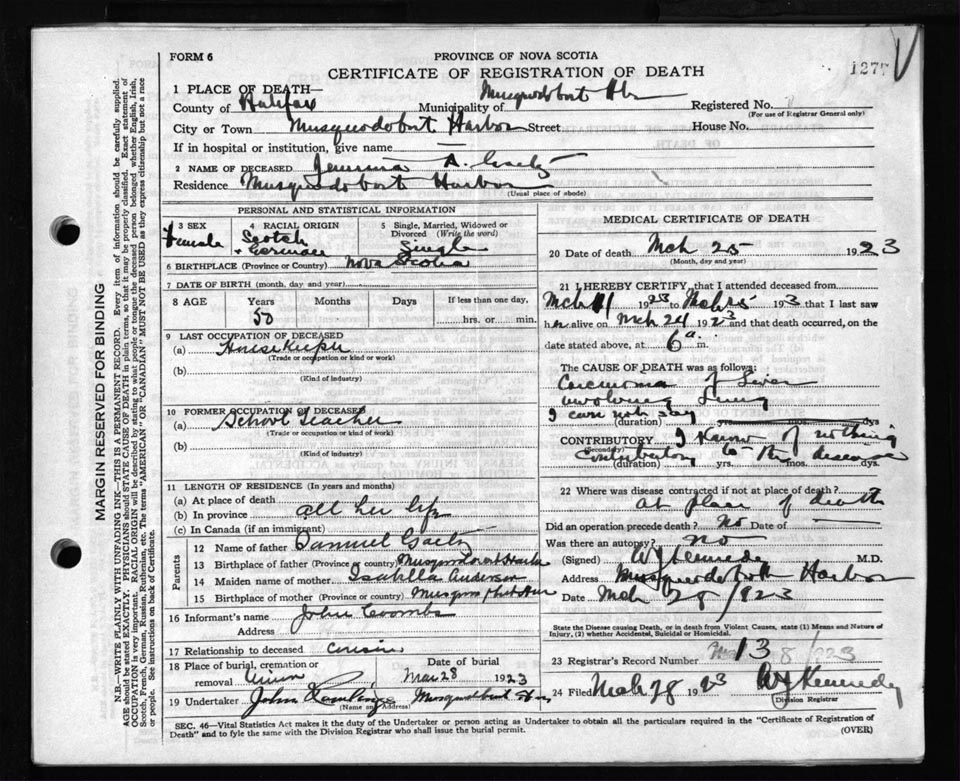 FORM 6
PROVINCE OF NOVA SCOTIA
CERTIFICATE OF REGISTRATION OF DEATH
1277
1 PLACE OF DEATH—
County of Halifax Municipality of Musquodoboit Hbr Registered No.
(For use of Registrar General only)
City or Town Musquodoboit Harbor Street House No.
If in hospital or institution, give name —
2 NAME OF DECEASED Jemima A. Gaetz
Residence Musquodoboit Harbor
(Usual place of abode)
PERSONAL AND STATISTICAL INFORMATION
3 SEX Female
4 RACIAL ORIGIN Scotch + German
5 Single, Married, Widowed or Divorced (Write the word) Single
6 BIRTHPLACE (Province or Country) Nova Scotia
7 DATE OF BIRTH (month, day and year)
8 AGE Years Months Days If less than one day,
50 hrs. or min.
9 LAST OCCUPATION OF DECEASED
(a) Housekeeper
(Trade or occupation or kind of work)
(b)
(Kind of industry)
10 FORMER OCCUPATION OF DECEASED
(a) School Teacher
(Trade or occupation or kind of work)
(b)
(Kind of industry)
11 LENGTH OF RESIDENCE (In years and months)
(a) At place of death
(b) In province all her life
(c) In Canada (if an immigrant)
Parents
12 Name of father Samuel Gaetz
13 Birthplace of father (Province or country) Musquodoboit Harbor
14 Maiden name of mother Isabella Anderson
15 Birthplace of mother (Province or country)
16 Informant's name John Coombs
Address
17 Relationship to deceased cousin
18 Place of burial, cremation or removal Union Date of burial Mar 28 1923
19 Undertaker John Musquodoboit Hbr
(Name and Address)
MEDICAL CERTIFICATE OF DEATH
20 Date of death Mch 25 1923
(Month, day and year)
21 I HEREBY CERTIFY, that I attended deceased from
Mch 1 1923 to Mch 25 1923 that I last saw
her alive on Mch 24 1923 and that death occurred, on
date stated above, at 6 a. m.
The CAUSE OF DEATH was as follows:
Carcinoma of Liver
involving Lung
I can not say
(duration) yrs. mos. dys
CONTRIBUTORY I know of nothing
(Secondary)
contributory to the disease
(duration) yrs. mos. dys.
22 Where was disease contracted if not at place of death?
at place of death
Did an operation precede death? No Date of —
Was there an autopsy? no
(Signed) W J Kennedy M.D.
Address Musquodoboit Harbor
Date Mch 28 1923
State the Disease causing Death, or in death from Violent Causes, state (1) Means and Nature of
Injury, (2) whether Accidental, Suicidal or Homicidal.
23 Registrar's Record Number 13
24 Filed Mch 28 1923 W J Kennedy
Division Registrar
SEC. 46—Vital Statistics Act makes it the duty of the Undertaker or person acting as Undertaker to obtain all the particulars required in the "Certificate of Registration of
Death" and to fyle the same with the Division Registrar who shall issue the burial permit.
(OVER)
MARGIN RESERVED FOR BINDING
N.B.—WRITE PLAINLY WITH UNFADING INK—THIS IS A PERMANENT RECORD. Every item of information should be carefully supplied.
AGE should be stated EXACTLY. PHYSICIANS should STATE CAUSE OF DEATH in plain terms, so that it may be properly classified. Exact statement of
OCCUPATION is very important. RACIAL ORIGIN will be described by stating to what people or tongue the deceased person belonged whether English, Irish,
Scotch, French, German, Russian, Ruthenian, etc. The terms "AMERICAN" or "CANADIAN" MUST NOT BE USED as they express citizenship but not a race
or people. See instructions on back of Certificate.